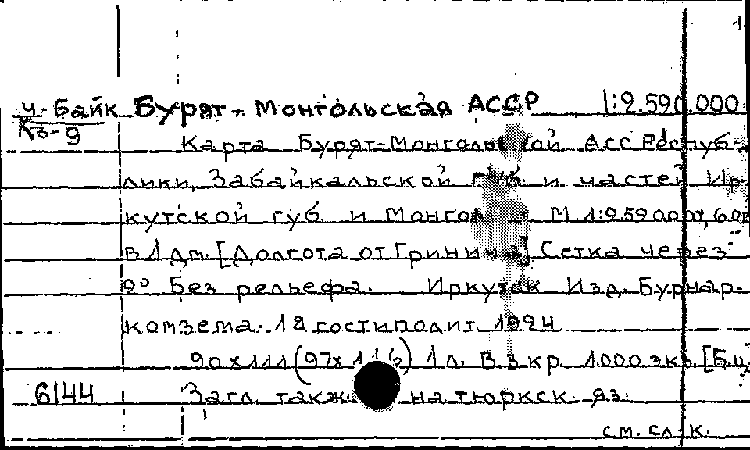 Ч-Байк Бурят-Монгольская АССР 1:2.590.000
Кз-9
Карта Бурят-Монгольской Асс Респуб-
лики, Забайкальской губ и частей Ир-
кутской губ и Монгол М 1:2590000,
в 1 дм. [Долгота от Гринича] Сетка через
2° Без рельефа. Иркутск Изд. Бурнар-
комзема. 1я гостиполит 1924
90х111 (97х112) 1л. В 3 кр. 1000 экз [Б.ц.]
6144 Загл. также на тюркск. яз.
см. сл. к.